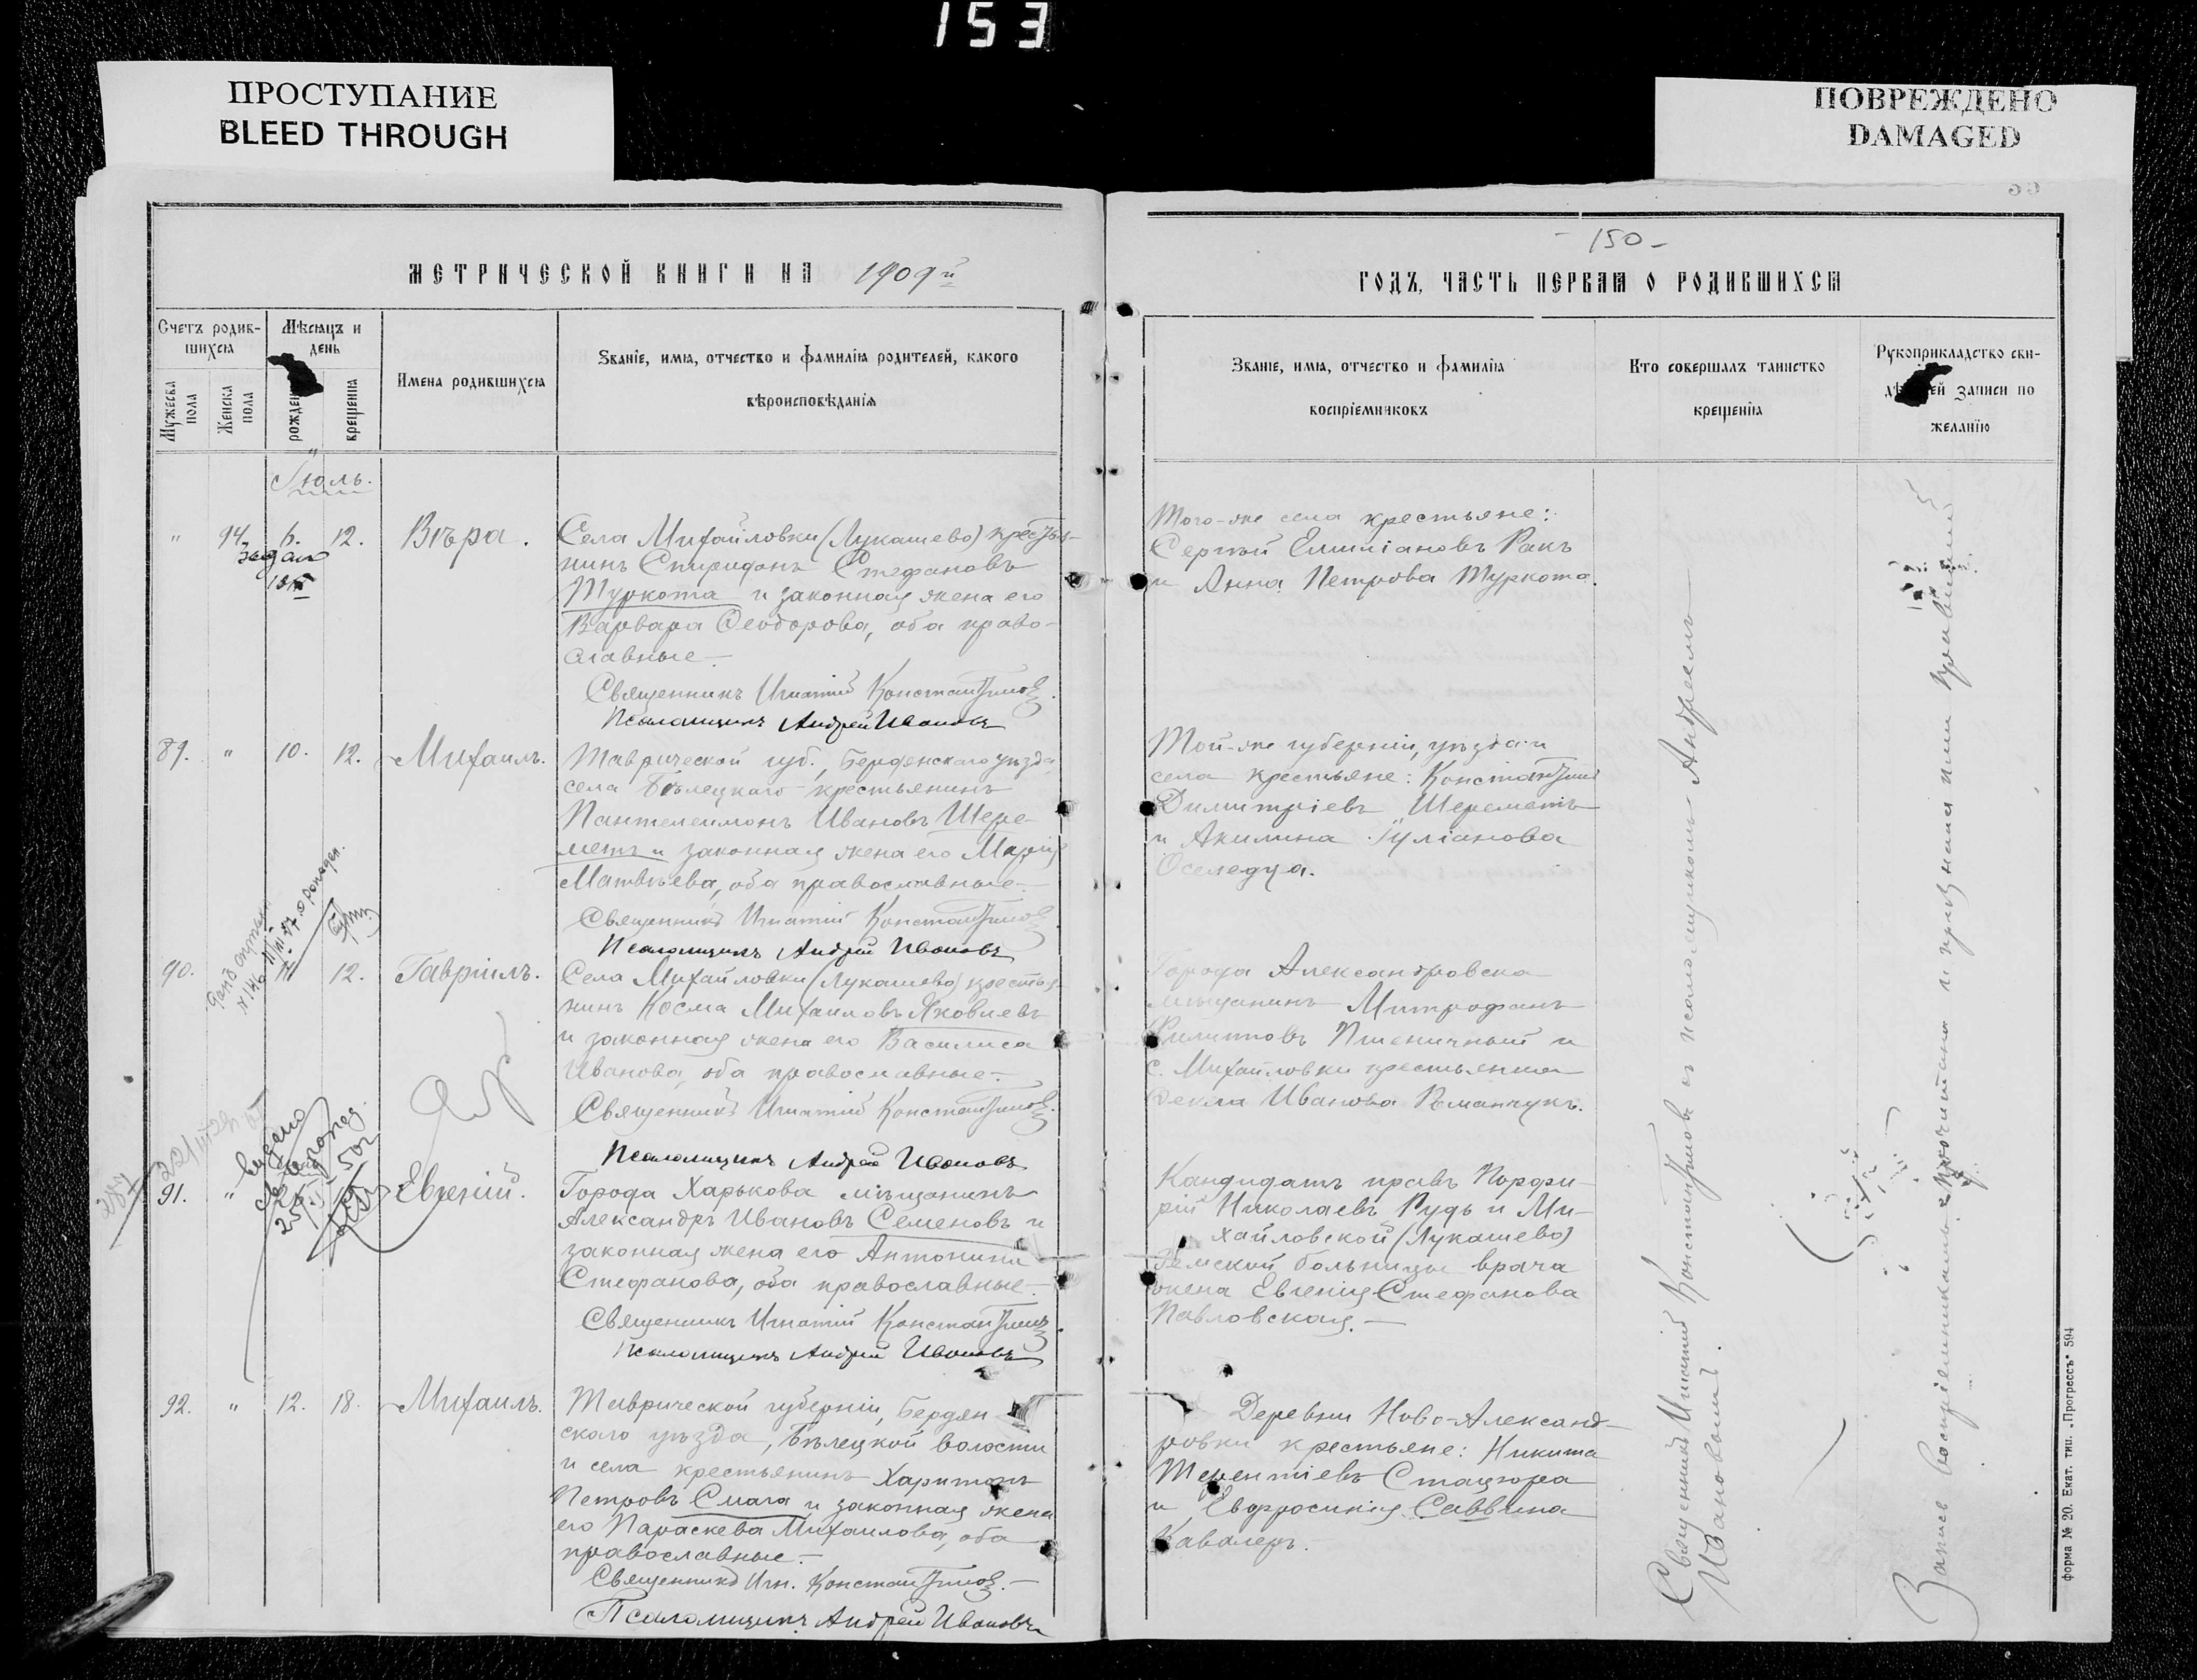 153
ПРОСТУПАНИЕ
BLEED THROUGH
ПОВРЕЖДЕНО
DAMAGED
МЕТРИЧЕСКОЙ КНИГИ НА 1909й
Счетъ родив-
шихся
Мужеска пола
Женска пола
Мѣсяцъ и
день
рожден
крещенія
Имена родившихся
Званіе, имя, отчество и фамилія родителей, какого
вѣроисповѣданія
Іюль.
" 94. 6. 12. Вѣра.
Села Михайловки (Лукашево) крестья-
нинъ Спиридонъ Стефановъ
Туркота и законная жена его
Варвара Ѳеодорова, оба право-
славные.
Священникъ Игнатій Константиновъ.
Псаломщикъ Андрей Ивановъ
89. " 10. 12. Михаилъ.
Таврической губ., Бердянскаго уѣзда
села Бѣлецкаго крестьянинъ
Пантелеимонъ Ивановъ Шере-
метъ и законная жена его Марія
Матвѣева, оба православные.
Священникъ Игнатій Константиновъ
Псаломщикъ Андрей Ивановъ
90. 11 12. Гавріилъ.
Села Михайловки (Лукашево) крестья-
нинъ Косма Михаиловъ Яковлевъ
и законная жена его Василиса
Иванова, оба православные.
Священникъ Игнатій Константиновъ.
Псаломщикъ Андрей Ивановъ
91. " Евгеній.
Города Харькова мѣщанинъ
Александръ Ивановъ Семеновъ и
законная жена его Антонина
Стефанова, оба православные.
Священникъ Игнатій Константиновъ.
Псаломщикъ Андрей Ивановъ
92. " 12. 18. Михаилъ.
Таврической губерніи, Бердян-
скаго уѣзда, Бѣлецкой волости
и села крестьянинъ Харитонъ
Петровъ Смага и законная жена
его Параскева Михаилова, оба
православные.
Священникъ Игн. Константиновъ.
Псаломщикъ Андрей Ивановъ
- 150 -
ГОДЪ, ЧАСТЬ ПЕРВАЯ О РОДИВШИХСЯ
Званіе, имя, отчество и фамилія
воспріемниковъ
Кто совершалъ таинство
крещенія
Рукоприкладство сви-
дѣ ей записи по
желанію
Того-же села крестьяне:
Сергѣй Емиліановъ Ракъ
и Анна Петрова Туркота.
Той-же губерніи, уѣзда и
села крестьяне: Константинъ
Димитріевъ Шереметъ
и Акилина Іуліанова
Оселедца.
Города Александровска
мѣщанинъ Митрофанъ
Филиповъ Пшеничный и
с. Михайловки крестьянка
Ѳекла Иванова Романчукъ.
Кандидатъ правъ Порфи-
рій Николаевъ Рудь и Ми-
хайловской (Лукашево)
Земской больницы врача
жена Евгенія Стефанова
Павловская.
Деревни Ново-Александ-
ровки крестьяне: Никита
Терентіевъ Стацюра
и Евфросинія Саввина
Кавалеръ.
Священникъ Игнатій Константиновъ съ псаломщикомъ Андреемъ
Ивановымъ.
форма № 20. Екат. тип. „Прогрессъ“ 594